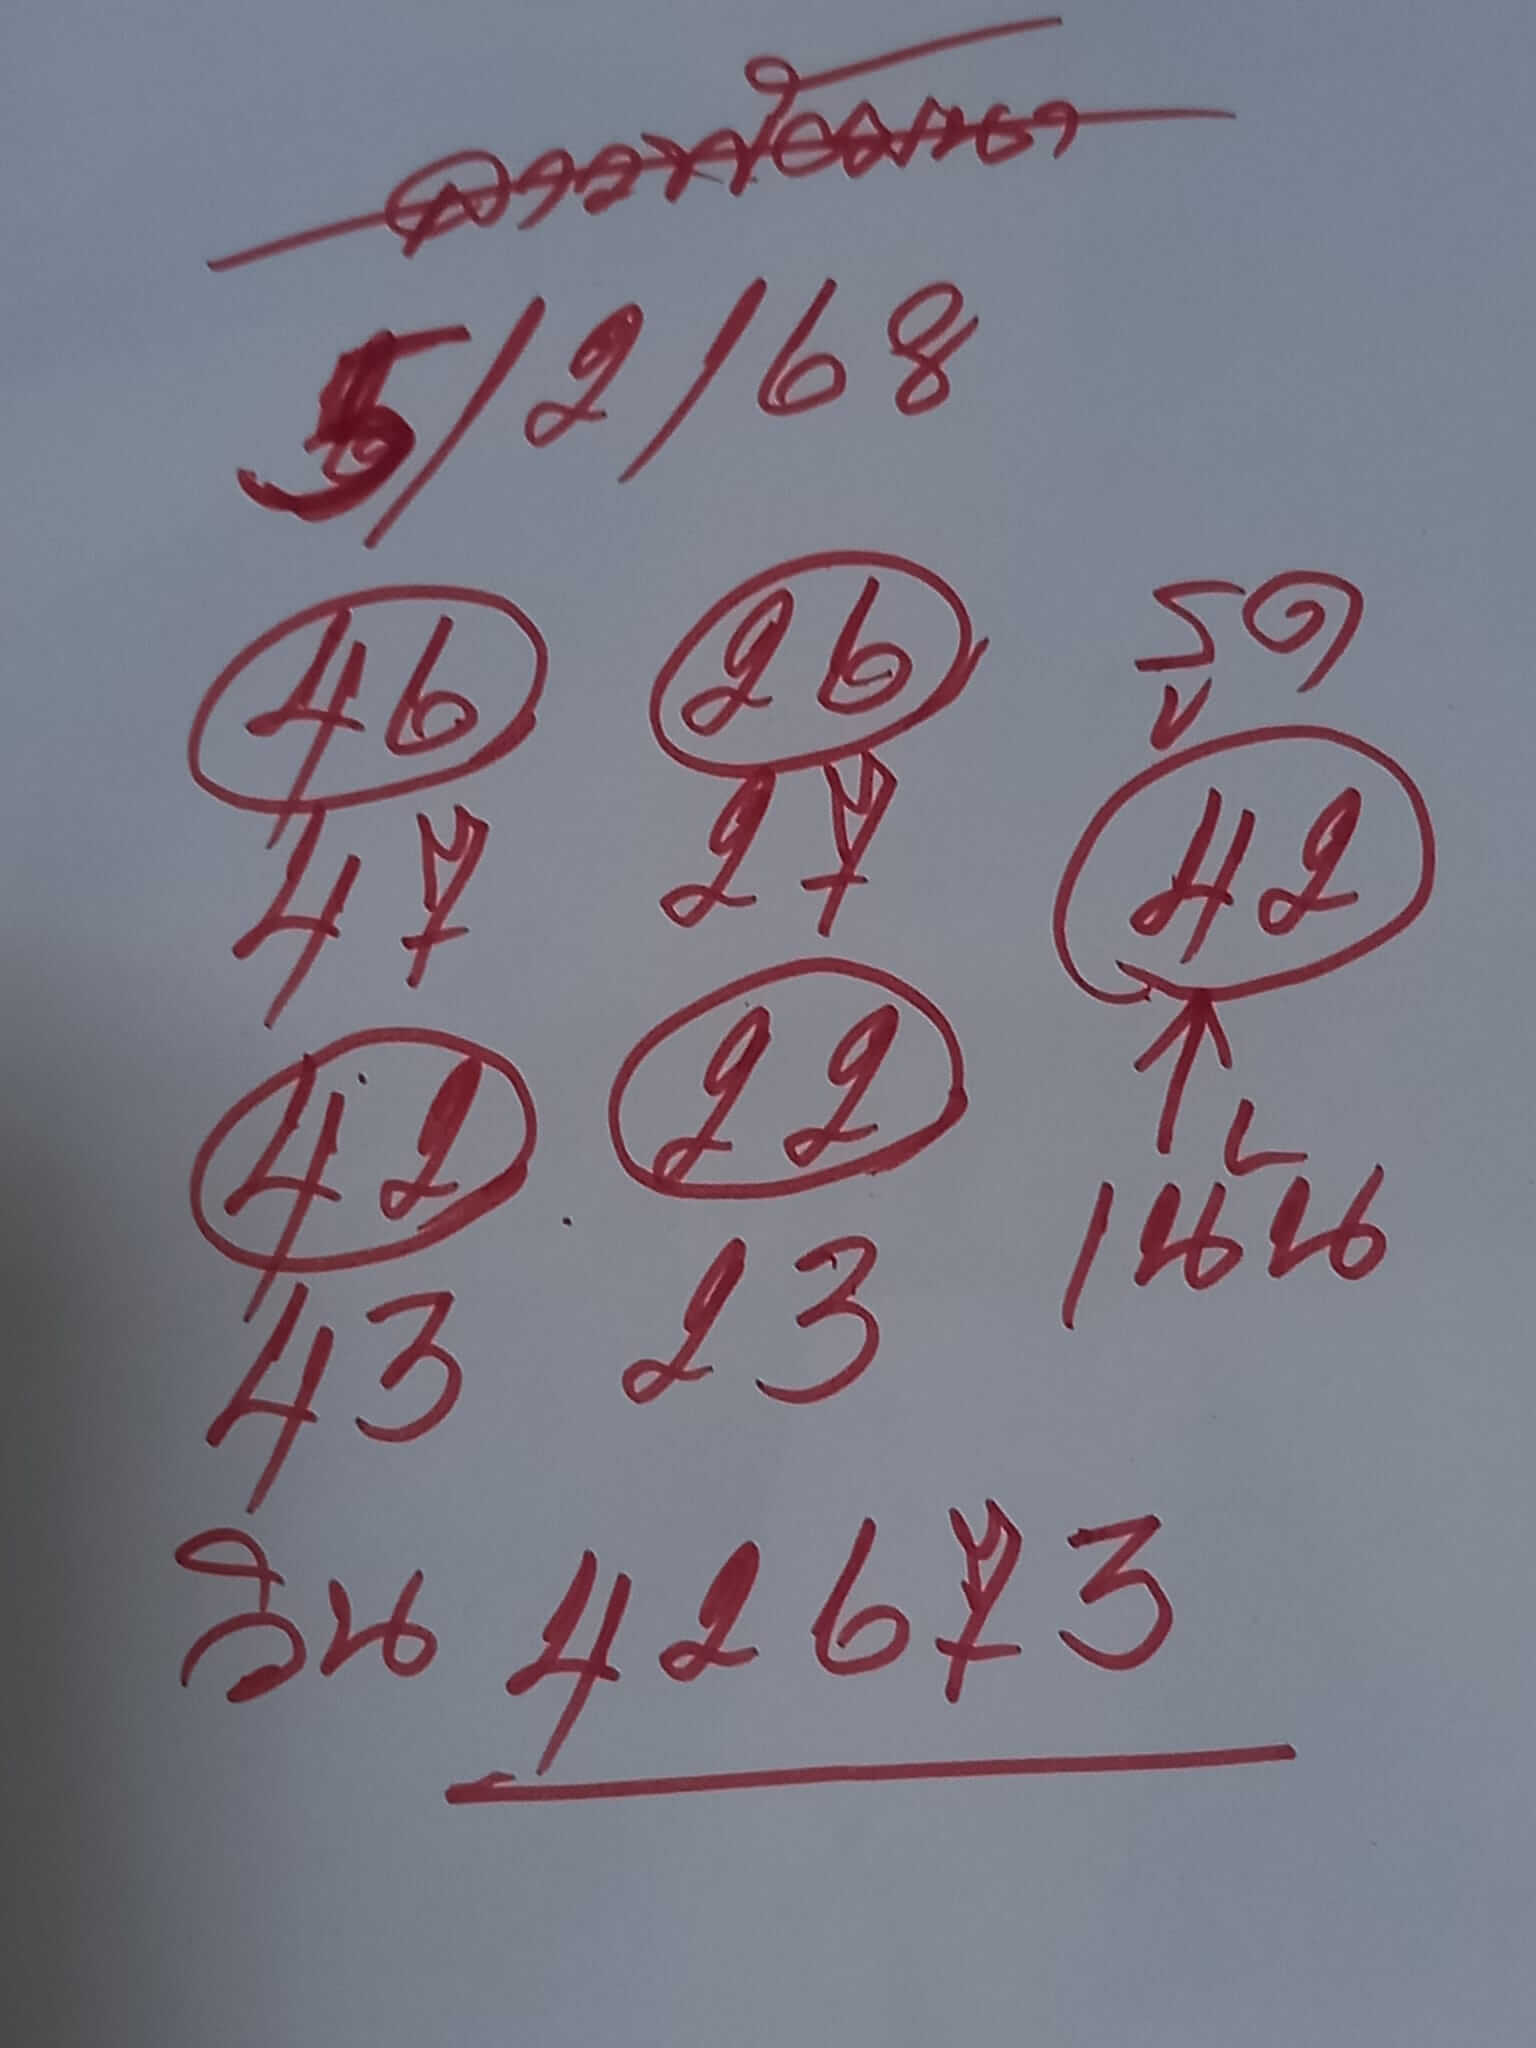 5/2/68
46 26 รูด
47 27 42
42 22
43 23 เน้น
วิน 42673